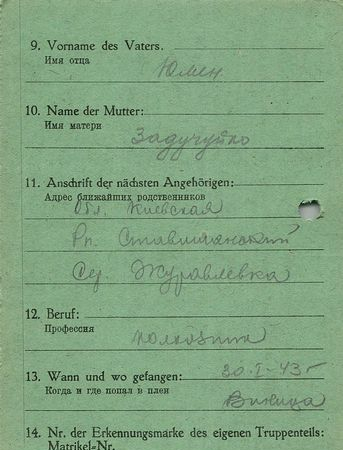 9. Vorname des Vaters.
Имя отца
Юмен
10. Name der Mutter:
Имя матери
Задучуйко
11. Anschrift der nächsten Angehörigen:
Адрес ближайших родственников
Обл. Киевская
Рн. Ставищанский
Сед. Журавлевка
12. Beruf:
Профессия
колхозник
13. Wann und wo gefangen: 20.I-43г
Когда и где попал в плен
Виница
14. Nr. der Erkennungsmarke des eigenen Truppenteils:
Matrikel-Nr.